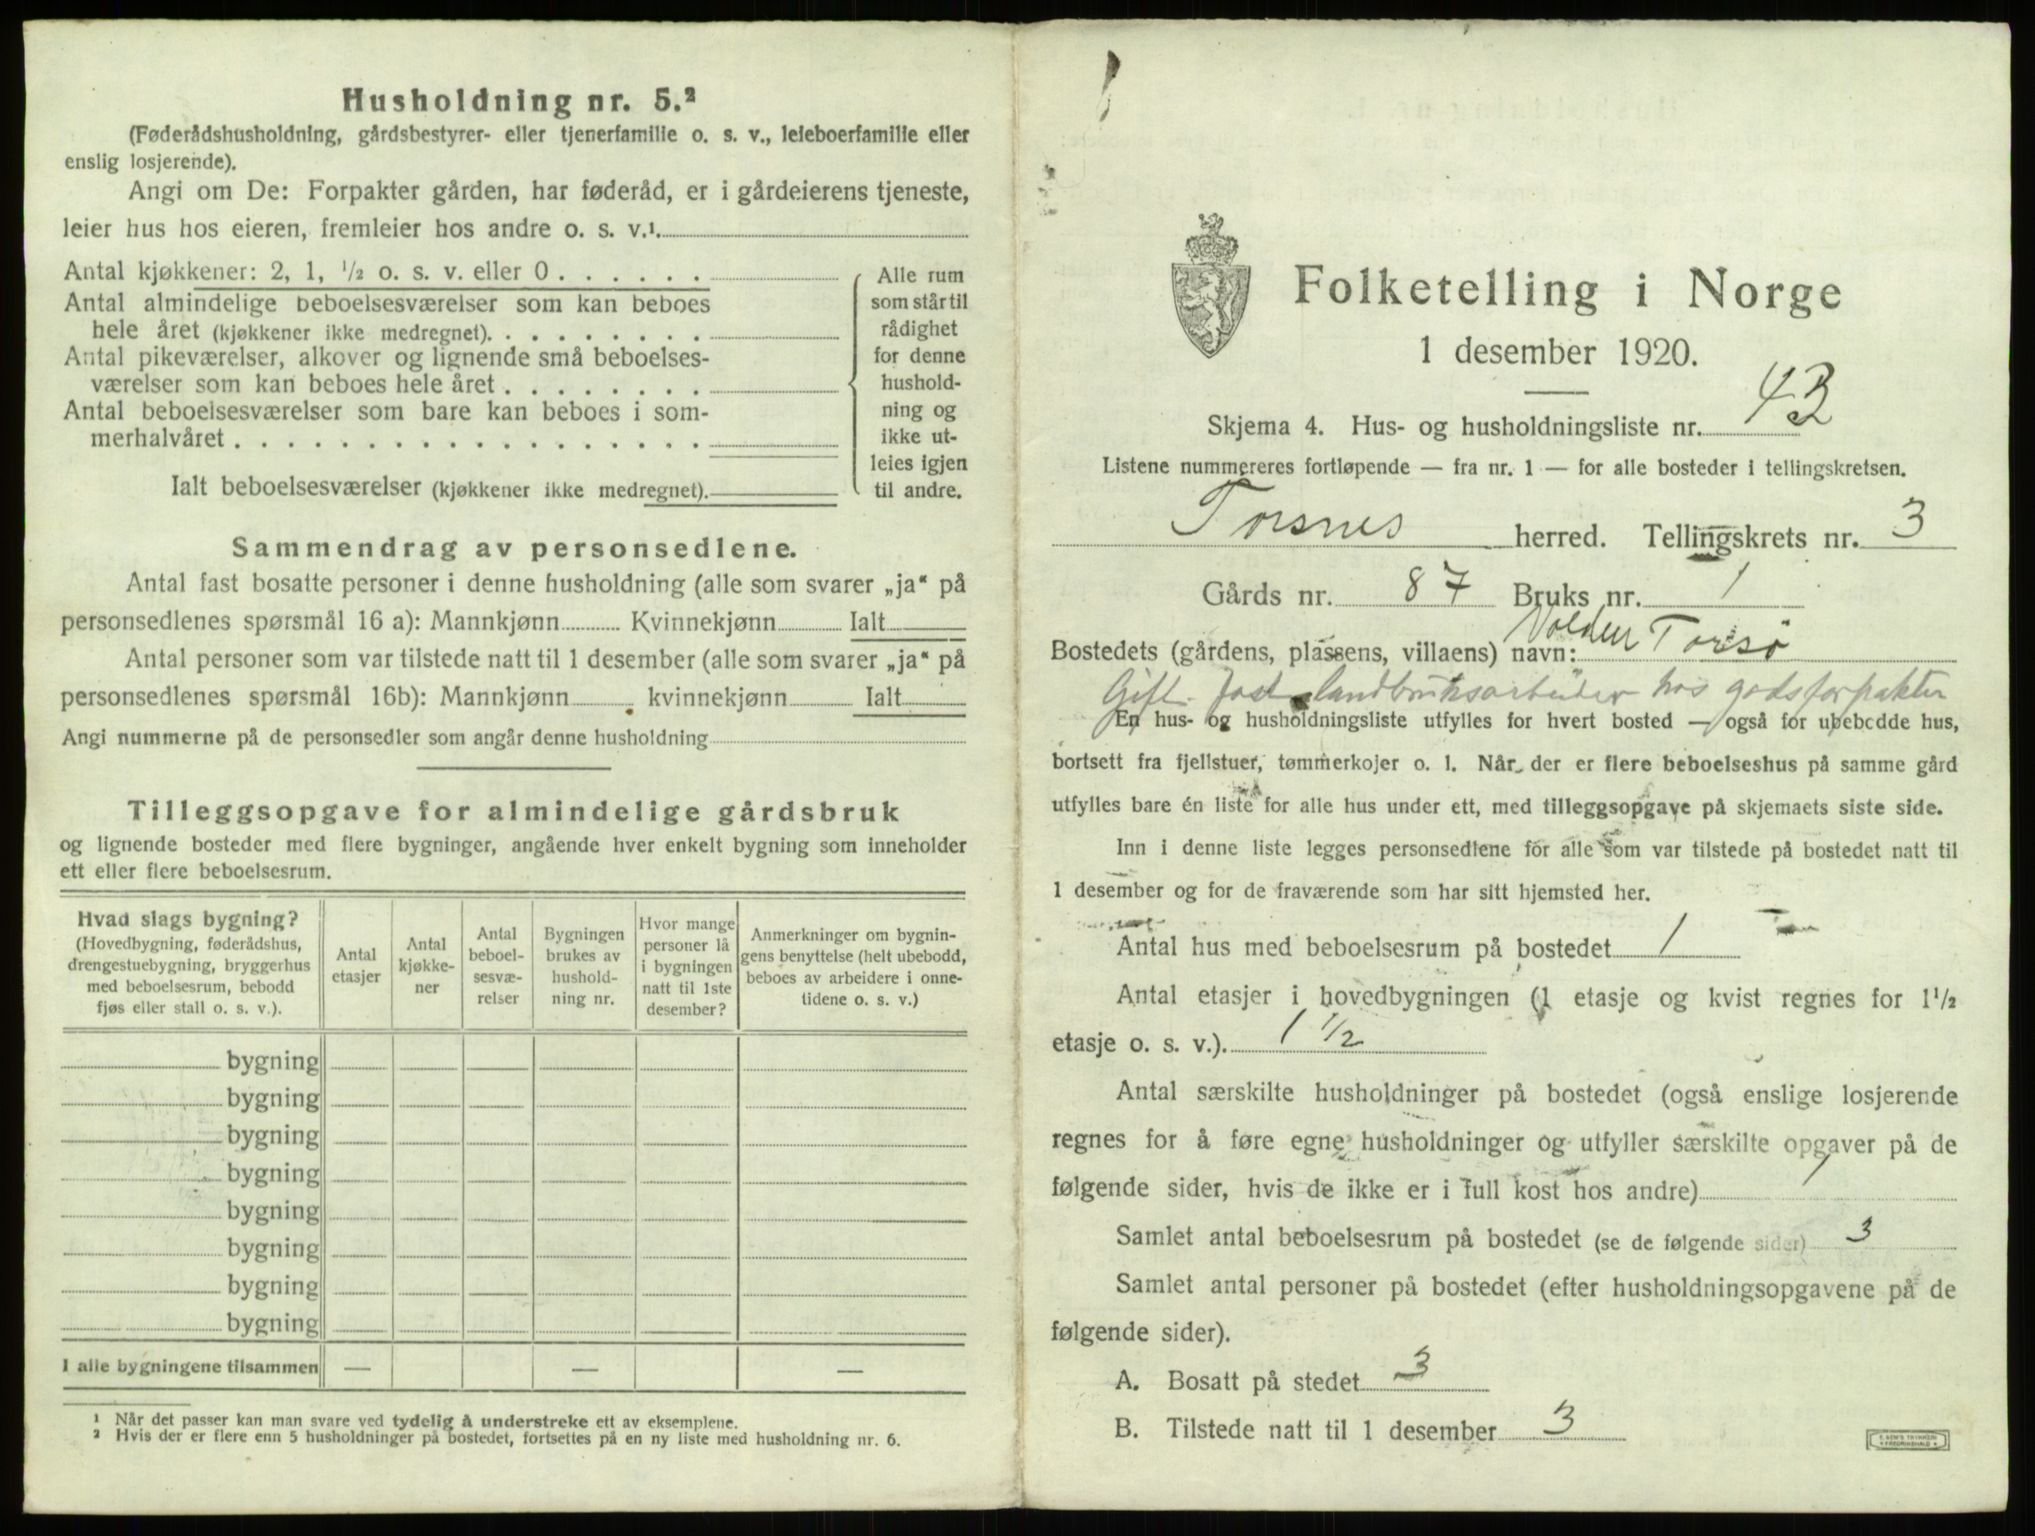 Husholdning nr. 5.²
(Føderådshusholdning, gårdsbestyrer- eller tjenerfamilie o. s. v., leieboerfamilie eller
enslig losjerende).
Angi om De: Forpakter gården, har føderåd, er i gårdeierens tjeneste,
leier hus hos eieren, fremleier hos andre o. s. v.¹.
Antal kjøkkener: 2, 1, ½ o. s. v. eller 0 . . . . . .
Antal almindelige beboelsesværelser som kan beboes
hele året (kjøkkener ikke medregnet). . . . . . . . .
Antal pikeværelser, alkover og lignende små beboelses-
værelser som kan beboes hele året . . . . . . . .
Antal beboelsesværelser som bare kan beboes i som-
merhalvåret . . . . . . . . . . . . . . . . . .
Ialt beboelsesværelser (kjøkkener ikke medregnet).
Alle rum
som står til
rådighet
for denne
hushold-
ning og
ikke ut-
leies igjen
til andre.
Sammendrag av personsedlene.
Antal fast bosatte personer i denne husholdning (alle som svarer „ja“ på
personsedlenes spørsmål 16 a): Mannkjønn Kvinnekjønn Ialt
Antal personer som var tilstede natt til 1 desember (alle som svarer „ja“ på
personsedlenes spørsmål 16b): Mannkjønn kvinnekjønn Ialt
Angi nummerne på de personsedler som angår denne husholdning
Tilleggsopgave for almindelige gårdsbruk
og lignende bosteder med flere bygninger, angående hver enkelt bygning som inneholder
ett eller flere beboelsesrum.
Hvad slags bygning?
(Hovedbygning, føderådshus,
drengestuebygning, bryggerhus
med beboelsesrum, bebodd
fjøs eller stall o. s. v.).
Antal
etasjer
Antal
kjøkke-
ner
Antal
beboel-
sesvæ-
relser
Bygningen
brukes av
hushold-
ning nr.
Hvor mange
personer lå
i bygningen
natt til 1ste
desember?
Anmerkninger om bygnin-
gens benyttelse (helt ubebodd,
beboes av arbeidere i onne-
tidene o. s. v.)
bygning
bygning
bygning
bygning
bygning
bygning
bygning
bygning
I alle bygningene tilsammen — — —
¹ Når det passer kan man svare ved tydelig å understreke ett av eksemplene.
² Hvis der er flere enn 5 husholdninger på bostedet, fortsettes på en ny liste med husholdning nr. 6.
Folketelling i Norge
1 desember 1920.
Skjema 4. Hus- og husholdningsliste nr. 43
Listene nummereres fortløpende — fra nr. 1 — for alle bosteder i tellingskretsen.
Torsnes herred. Tellingskrets nr. 3
Gårds nr. 87 Bruks nr. 1
Bostedets (gårdens, plassens, villaens) navn: Volden Torsø
Gift. fast landbruksarbeider hos godsforpakter
En hus- og husholdningsliste utfylles for hvert bosted — også for ubebodde hus,
bortsett fra fjellstuer, tømmerkojer o. l. Når der er flere beboelseshus på samme gård
utfylles bare én liste for alle hus under ett, med tilleggsopgave på skjemaets siste side.
Inn i denne liste legges personsedlene for alle som var tilstede på bostedet natt til
1 desember og for de fraværende som har sitt hjemsted her.
Antal hus med beboelsesrum på bostedet 1
Antal etasjer i hovedbygningen (1 etasje og kvist regnes for 1½
etasje o. s. v.). 1 ½
Antal særskilte husholdninger på bostedet (også enslige losjerende
regnes for å føre egne husholdninger og utfyller særskilte opgaver på de
følgende sider, hvis de ikke er i full kost hos andre) 1
Samlet antal beboelsesrum på bostedet (se de følgende sider) 3
Samlet antal personer på bostedet (efter husholdningsopgavene på de
følgende sider).
A. Bosatt på stedet 3
B. Tilstede natt til 1 desember 3